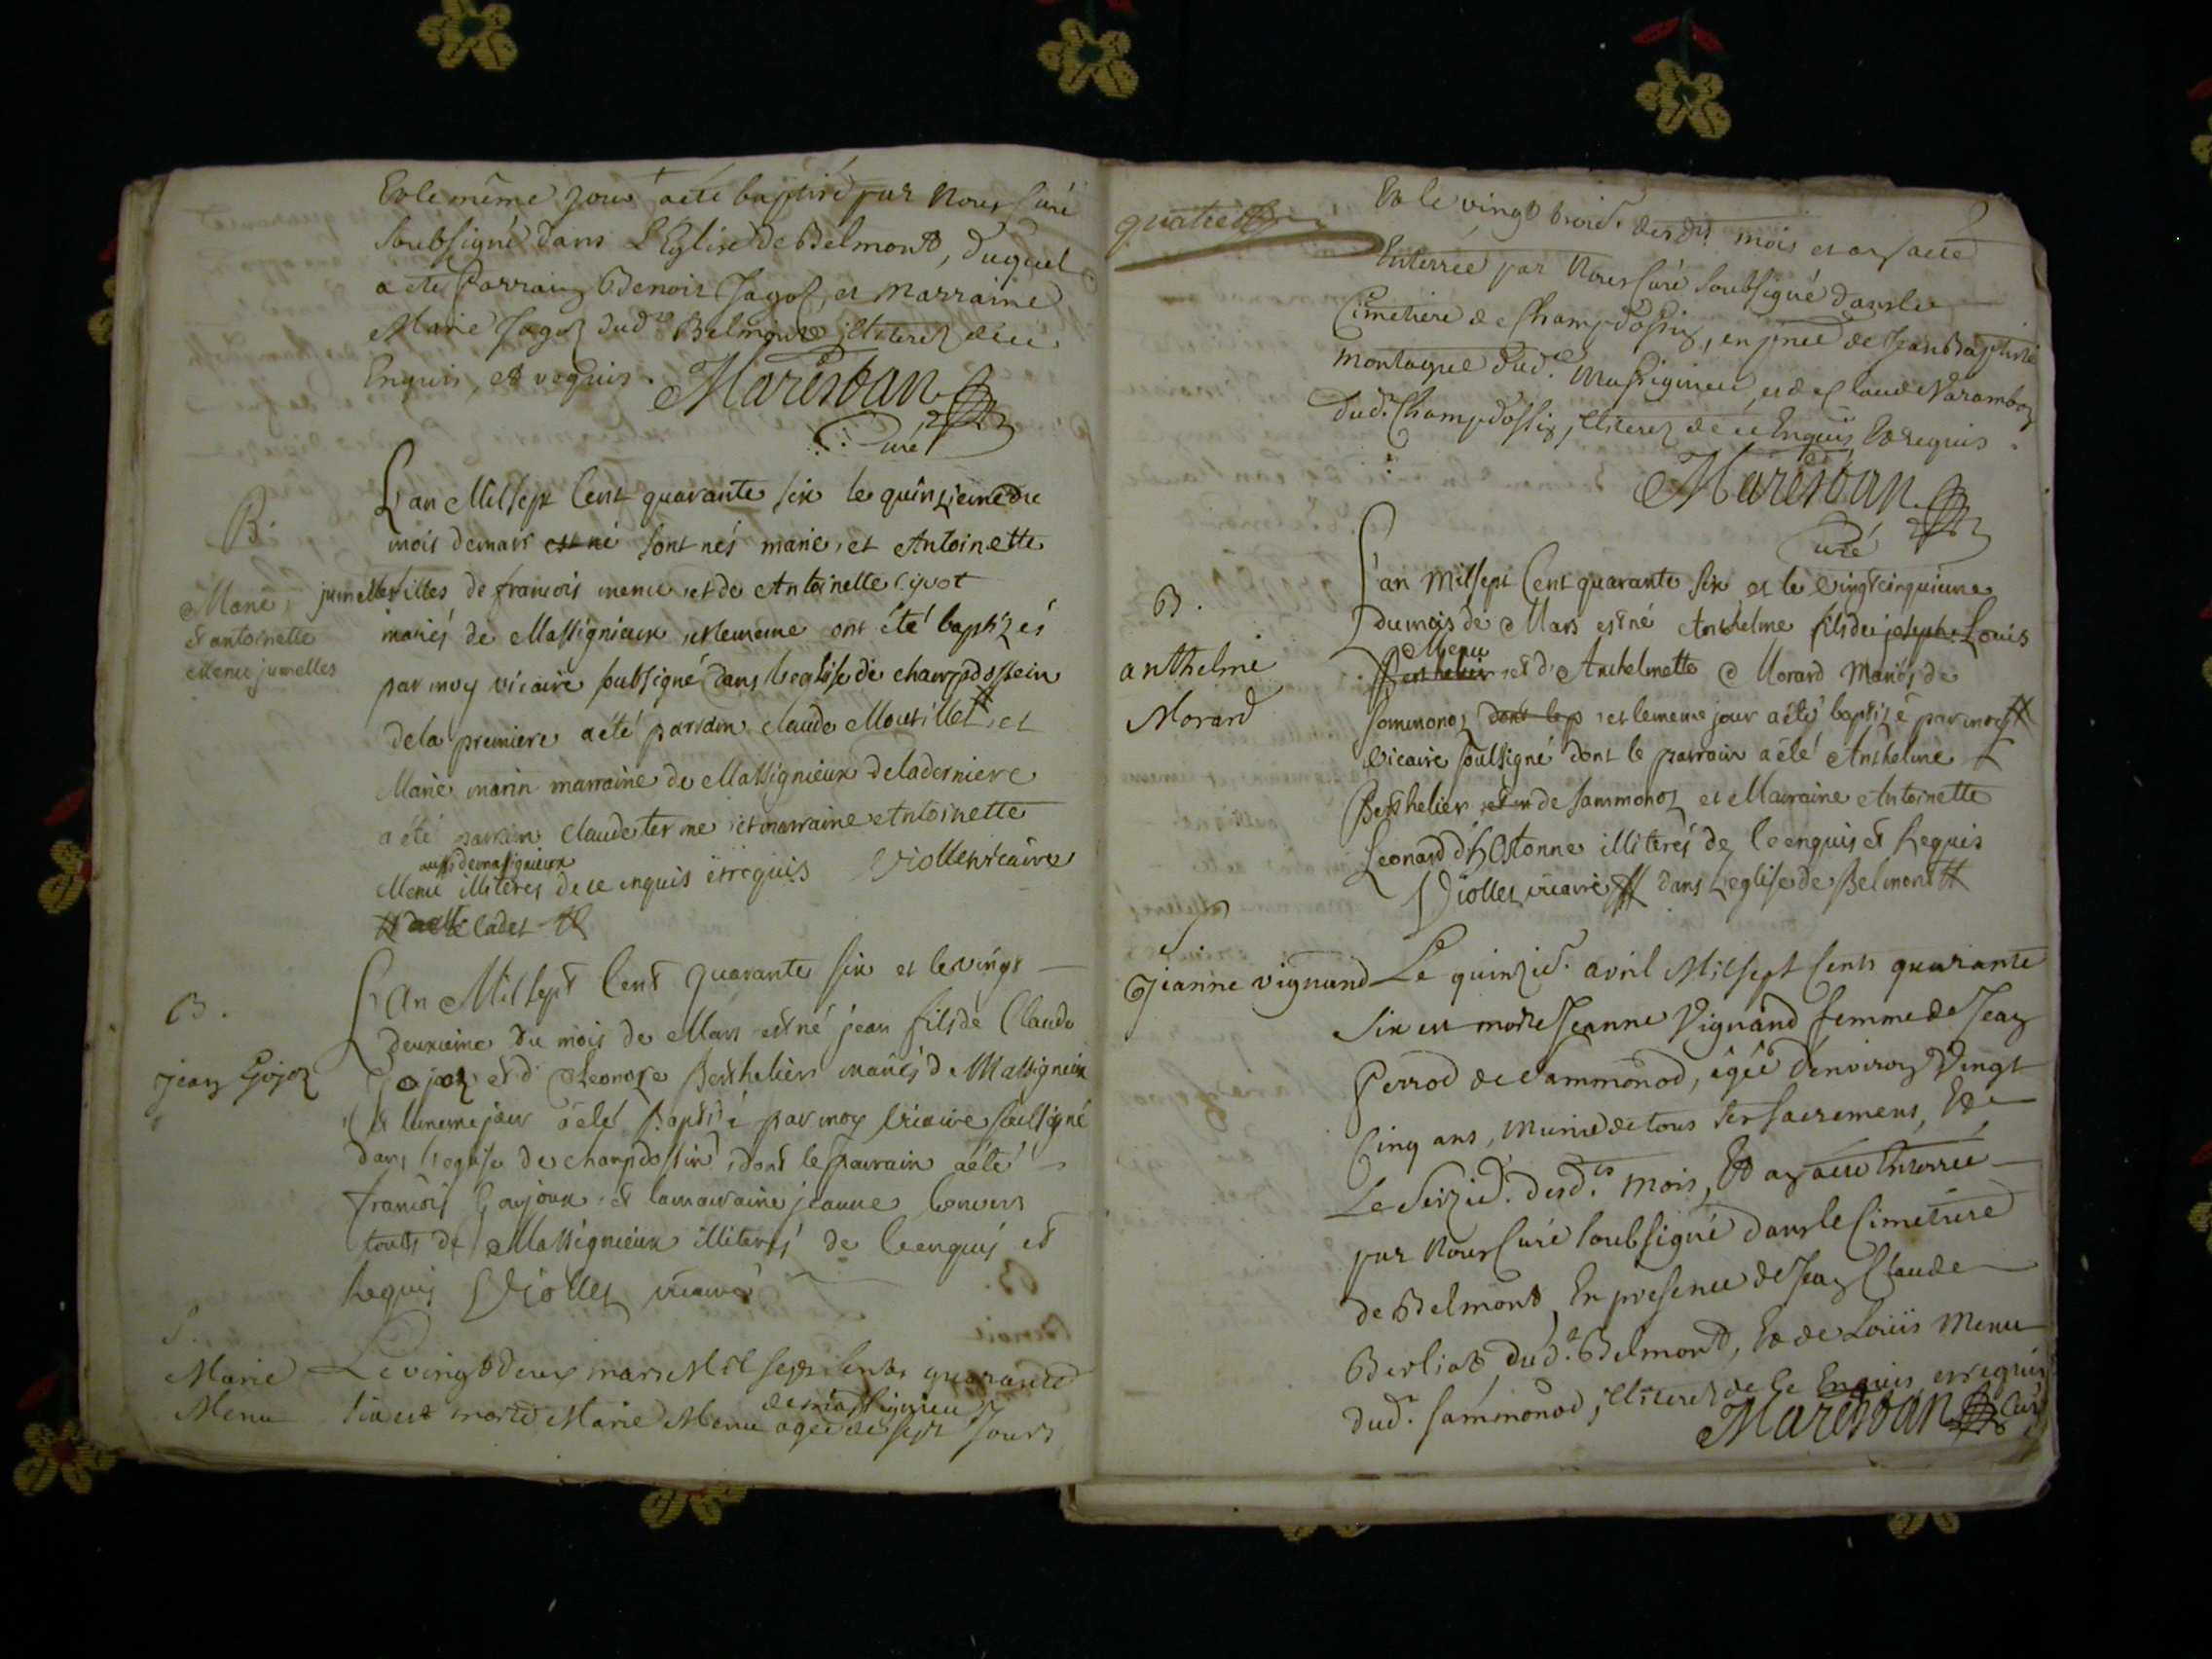 Et le même jour a eté baptisé par Nous Curé
soubsigné dans L'Eglise de Belmont, duquel
a eté Parrain Benoit Jagot, et Marraine
Marie Jagot dud. Belmont illiterez de ce
Enquis, et requis. Marestan
Curé
B.
Marie
et antoinette
Menu jumelles
L'an Mil sept Cent quarante six le quinzieme du
mois de mars est né sont nés marie, et Antoinette
jumelles filles de francois menu et de Antoinette
mariés de Massignieux et le meme ont été baptizés
par moy vicaire soubsigné dans leglise de champdossein
de la premiere a été parrain claude Moutillet # et
Marie marin marraine de Massignieux de la derniere
a été parrain claude terme et marraine Antoinette
aussi de massignieux
Menu illiteres de ce enquis et requis Viollet vicaire
# cadet #
B.
jean Gojoz
L'An Mil sept Cent quarante six et le vingt
deuxieme du mois de Mars est né jean fils de Claude
Gojoz et d'Leonore Berthelier mariés de Massignieux
et le meme jour a eté Baptisé par moy vicaire soussigné
dans leglise de champdossin, dont le parrain a eté
francois Goujoux et la marraine jeanne
touts de Massignieux illiterés de ce enquis et
requis Viollet vicaire
S.
Marie
Menu
Le vingt deux mars Mil sept cents quarante
de massignieu
six est morte Marie Menu agée de sept Jours
quatre
Et le vingt trois. desdts mois et an a eté
Enterrée par Nous Curé soubsigné dans le
Cimetiere de Champdossin, en pnce de Jean Baptiste
montagne dud. Massignieu, et de Claude Narambon
dud. Champdossin, illiterez de ce Enquis, Et requis.
Marestan
Curé
B.
anthelme
Morard
L'an Mil sept Cent quarante six et le vingt cinquieme
du mois de Mars est né Anthelme fils de joseph Louis
Menu
Berthelier et d'Anthelmette Morard Mariés de
sommonoz dont le p et le meme jour a été baptizé par moy #
vicaire soussigné dont le parrain a été Anthelme
Berthelier et de sammonoz et Marraine Antoinette
Leonard d'Ostonne illiterés de ce enquis et requis
Viollet vicaire # dans leglise de Belmont #
S
Jeanne vignand
Le quinzie. avril Mil sept Cents quarante
six est morte Jeanne Vignand femme de Jean
Perrod de Sammonod, âgée d'environ Vingt
Cinq ans, munie de tous ses sacremens, Et
Le Seizie. desd.ts mois, Et an a eté Enterrée
par Nous Curé soubsigné dans le Cimetiere
de Belmont, En presence de Jean Claude
Berliat, dud. Belmont, Et de Loüis Menu
dud. Sammonod, illiterez de ce Enquis, et requis
Marestan Curé